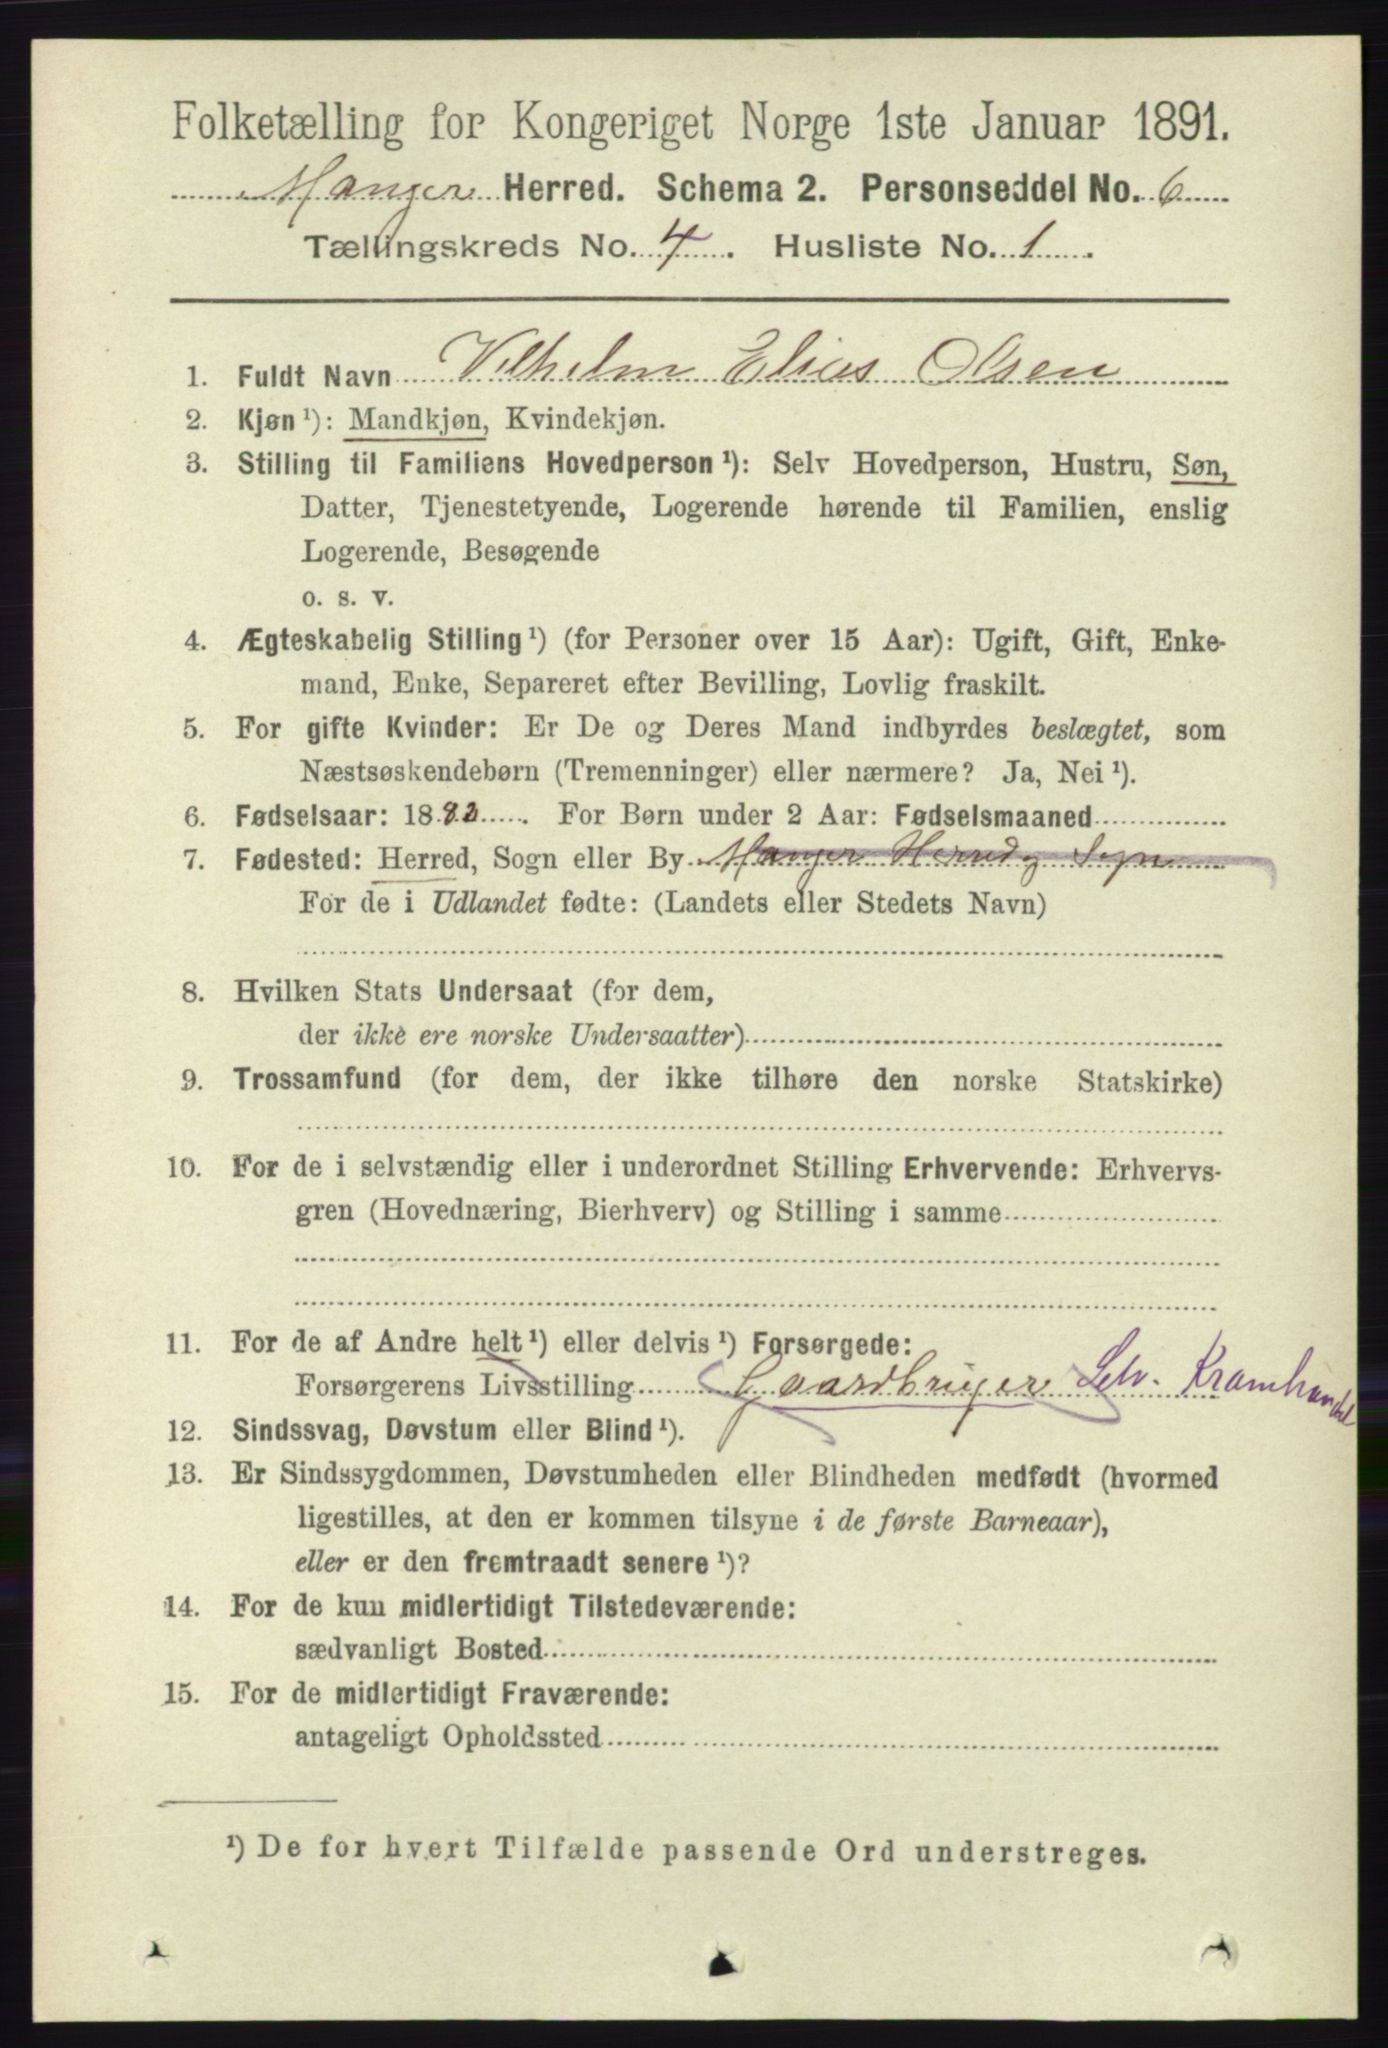 Folketælling for Kongeriget Norge 1ste Januar 1891.
Manger Herred. Schema 2. Personseddel No. 6
Tællingskreds No. 4. Husliste No. 1.
1. Fuldt Navn Vilhelm Elias Olsen
2. Kjøn ¹): Mandkjøn, Kvindekjøn.
3. Stilling til Familiens Hovedperson ¹): Selv Hovedperson, Hustru, Søn,
Datter, Tjenestetyende, Logerende hørende til Familien, enslig
Logerende, Besøgende
o. s. v.
4. Ægteskabelig Stilling ¹) (for Personer over 15 Aar): Ugift, Gift, Enke-
mand, Enke, Separeret efter Bevilling, Lovlig fraskilt.
5. For gifte Kvinder: Er De og Deres Mand indbyrdes beslægtet, som
Næstsøskendebørn (Tremenninger) eller nærmere? Ja, Nei ¹).
6. Fødselsaar: 1882. For Børn under 2 Aar: Fødselsmaaned
7. Fødested: Herred, Sogn eller By Manger Herred og Sogn
For de i Udlandet fødte: (Landets eller Stedets Navn)
8. Hvilken Stats Undersaat (for dem,
der ikke ere norske Undersaatter)
9. Trossamfund (for dem, der ikke tilhøre den norske Statskirke)
10. For de i selvstændig eller i underordnet Stilling Erhvervende: Erhvervs-
gren (Hovednæring, Bierhverv) og Stilling i samme
11. For de af Andre helt ¹) eller delvis ¹) Forsørgede:
Forsørgerens Livsstilling Gaardbruger Selv. Kramhandel
12. Sindssvag, Døvstum eller Blind ¹).
13. Er Sindssygdommen, Døvstumheden eller Blindheden medfødt (hvormed
ligestilles, at den er kommen tilsyne i de første Barneaar),
eller er den fremtraadt senere ¹)?
14. For de kun midlertidigt Tilstedeværende:
sædvanligt Bosted
15. For de midlertidigt Fraværende:
antageligt Opholdssted
¹) De for hvert Tilfælde passende Ord understreges.